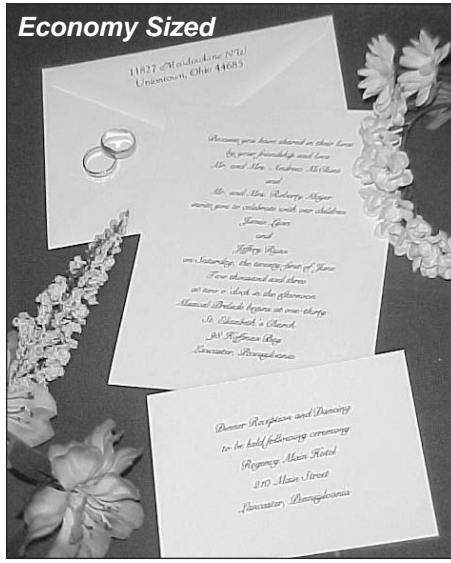 Economy Sized
11827 Meadowlane NW
Uniontown, Ohio 44685
Because you have shared in their lives
by your friendship and love
Mr. and Mrs. Andrew McClure
and
Mr. and Mrs. Roberty Mayer
invite you to celebrate with our children
Jamie Lynn
and
Jeffry Ryan
on Saturday, the twenty first of June
Two thousand and three
at two o'clock in the afternoon
Musical Prelude begins at one-thirty
St. Elizabeth's Church
98 Hoffman Bay
Lancaster, Pennsylvania
Dinner Reception and Dancing
to be held following ceremony
Regency Main Hotel
210 Main Street
Lancaster, Pennsylvania